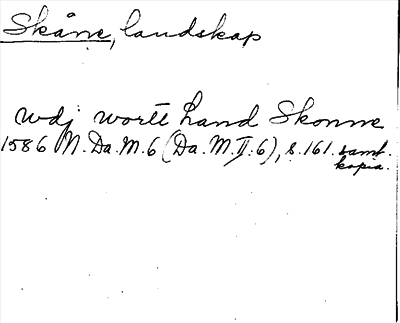 Skåne, landskap
wdj wortt Land Skonne
1586 N.Da.M.6 (Da.M.II:6), s.161. samt.
kopia.